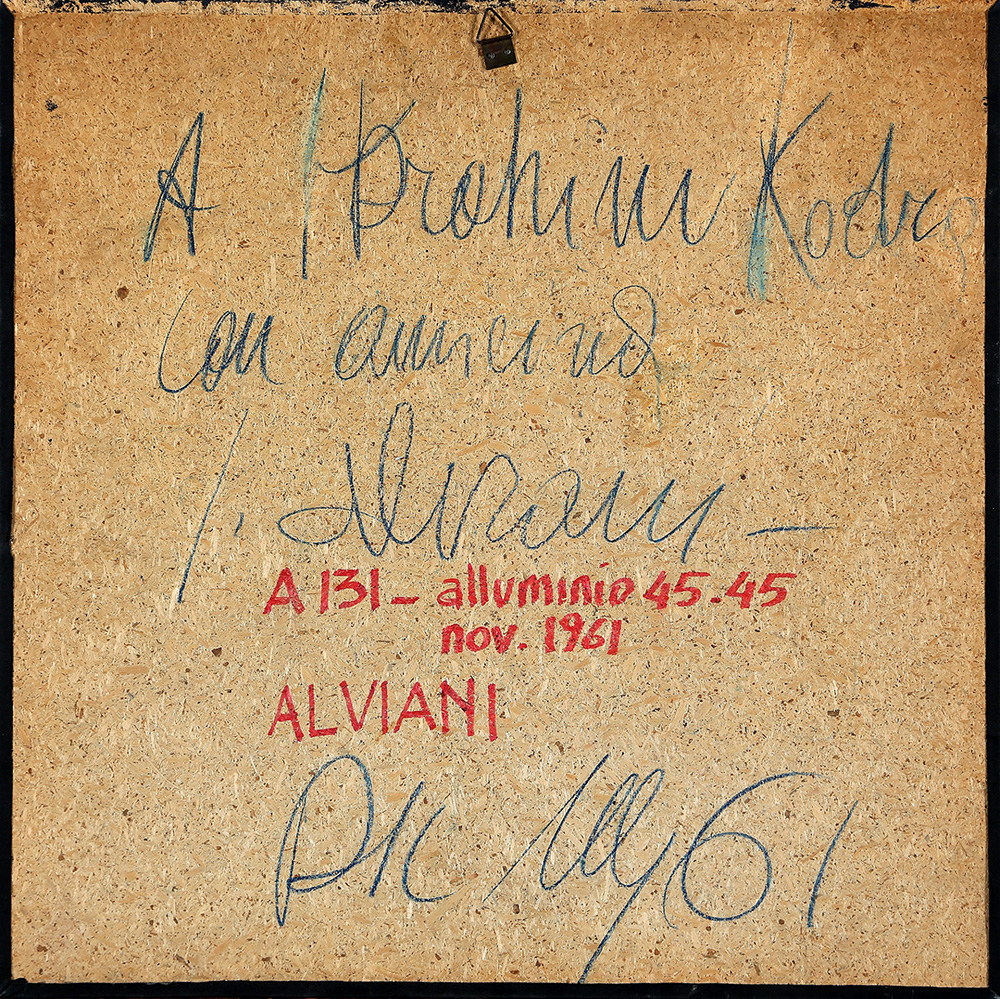 A Ibrahim Kodra
con
Alviani -
A 131 - alluminio 45.45
nov. 1961
ALVIANI
61